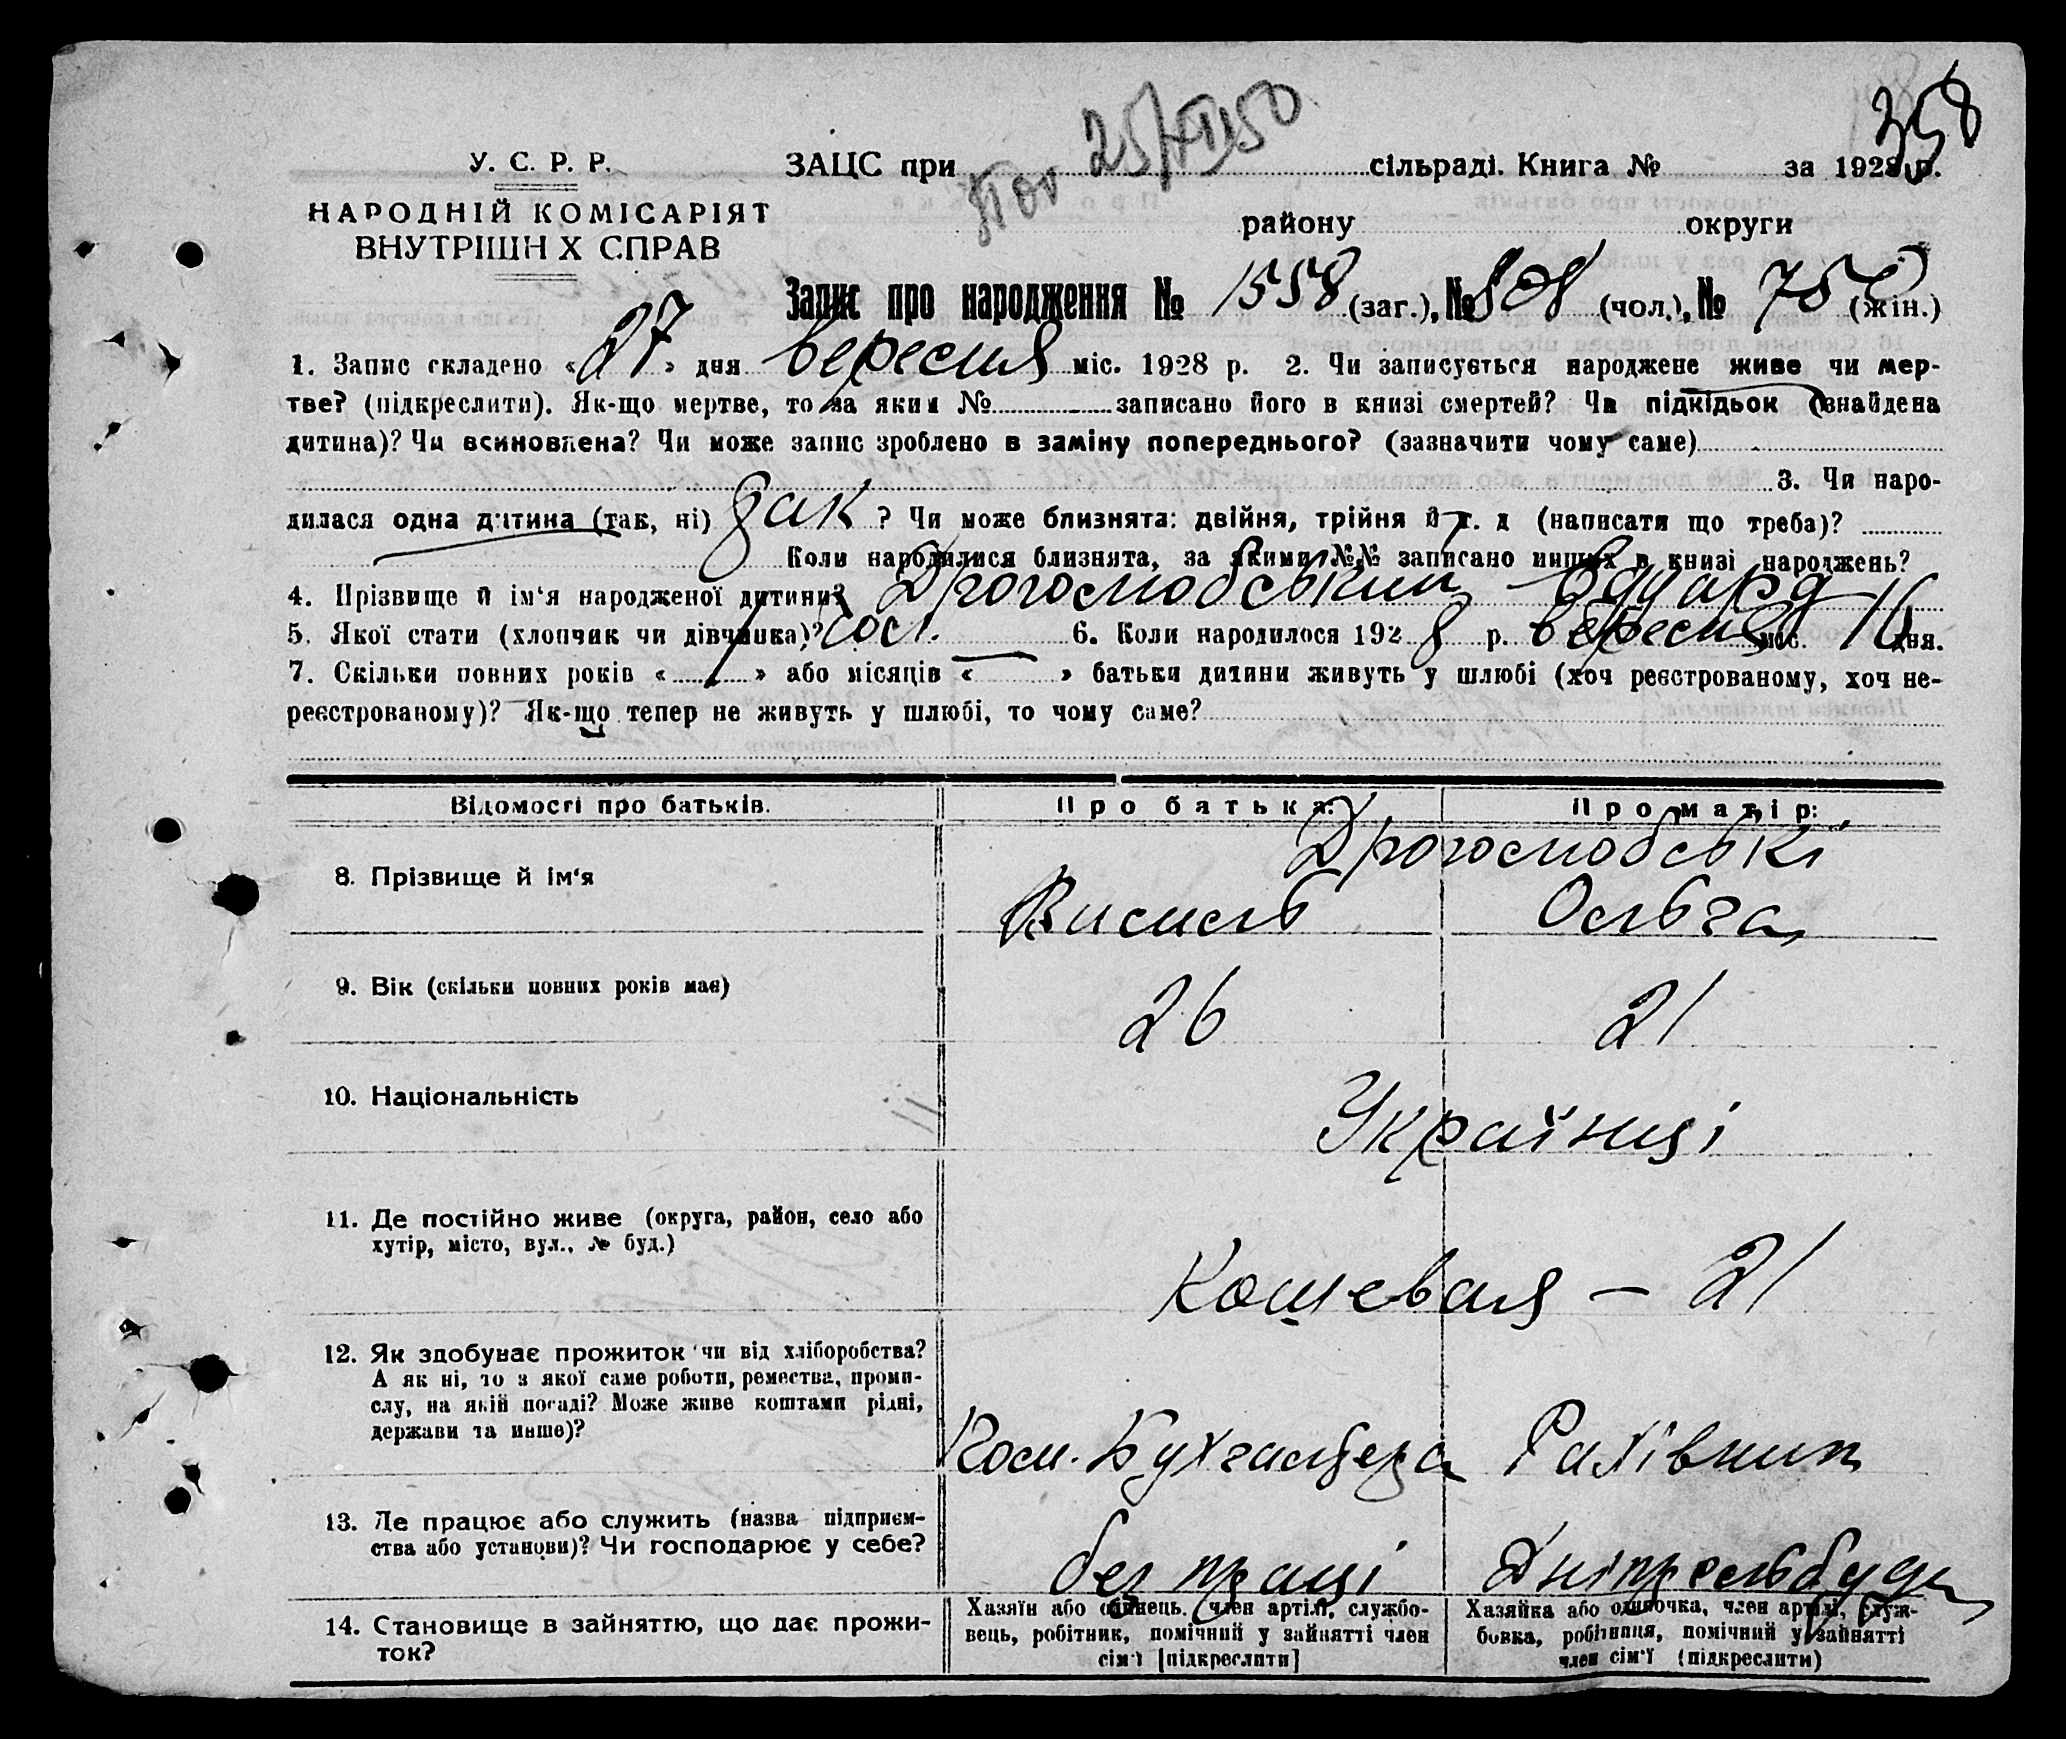 358
Пов 25/XII 50
У. С. Р. Р. ЗАЦС при сільраді. Книга № за 1928 р.
НАРОДНІЙ КОМІСАРІЯТ району округи
ВНУТРІШН Х СПРАВ
Запис про народження № 1558 (заг.), № 808 (чол.), № 750 (жін.)
1. Запис складено «27» дня вересня міс. 1928 р. 2. Чи записується народжене живе чи мер-
тве? (підкреслити). Як-що мертве, то за яким № записано його в книзі смертей? Чи підкідьок (знайдена
дитина)? Чи всиновлена? Чи може запис зроблено в заміну попереднього? (зазначити чому саме)
3. Чи наро-
дилася одна дитина (так, ні) так ? Чи може близнята: двійня, трійня й т. д (написати що треба)?
Коли народилися близнята, за якими №№ записано инших в книзі народжень?
4. Прізвище й ім‘я народженої дитини? Дрогомобський Едуард
5. Якої стати (хлопчик чи дівчинка)? чол. 6. Коли народилося 1928 р. вересня міс. 16 дня.
7. Скільки повних років « 1 » або місяців « — » батьки дитини живуть у шлюбі (хоч реєстрованому, хоч не-
реєстрованому)? Як-що тепер не живуть у шлюбі, то чому саме?
Відомості про батьків. Про батька: Про матір:
Дрогомобські
8. Прізвище й ім‘я Василь Ольга
9. Вік (скільки повних років має) 26 21
10. Національність Українці
11. Де постійно живе (округа, район, село або
хутір, місто, вул., № буд.) Кошевая – 21
12. Як здобуває прожиток чи від хліборобства?
А як ні, то з якої саме роботи, ремества, проми-
слу, на якій посаді? Може живе коштами рідні,
держави та инше)? Пом. Бухгалтера Рахівник
13. Де працює або служить (назва підприєм-
ства або установи)? Чи господарює у себе? без праці Дніпрельбуд
14. Становище в зайняттю, що дає прожи-
ток?
Хазяїн або одинець, член артілі, службо-
вець, робітник, помічний у зайнятті член
сім‘ї [підкреслити]
Хазяйка або одиночка, член артілі, служ-
бовка, робітниця, помічний у зайнятті
член сім‘ї (підкреслити)